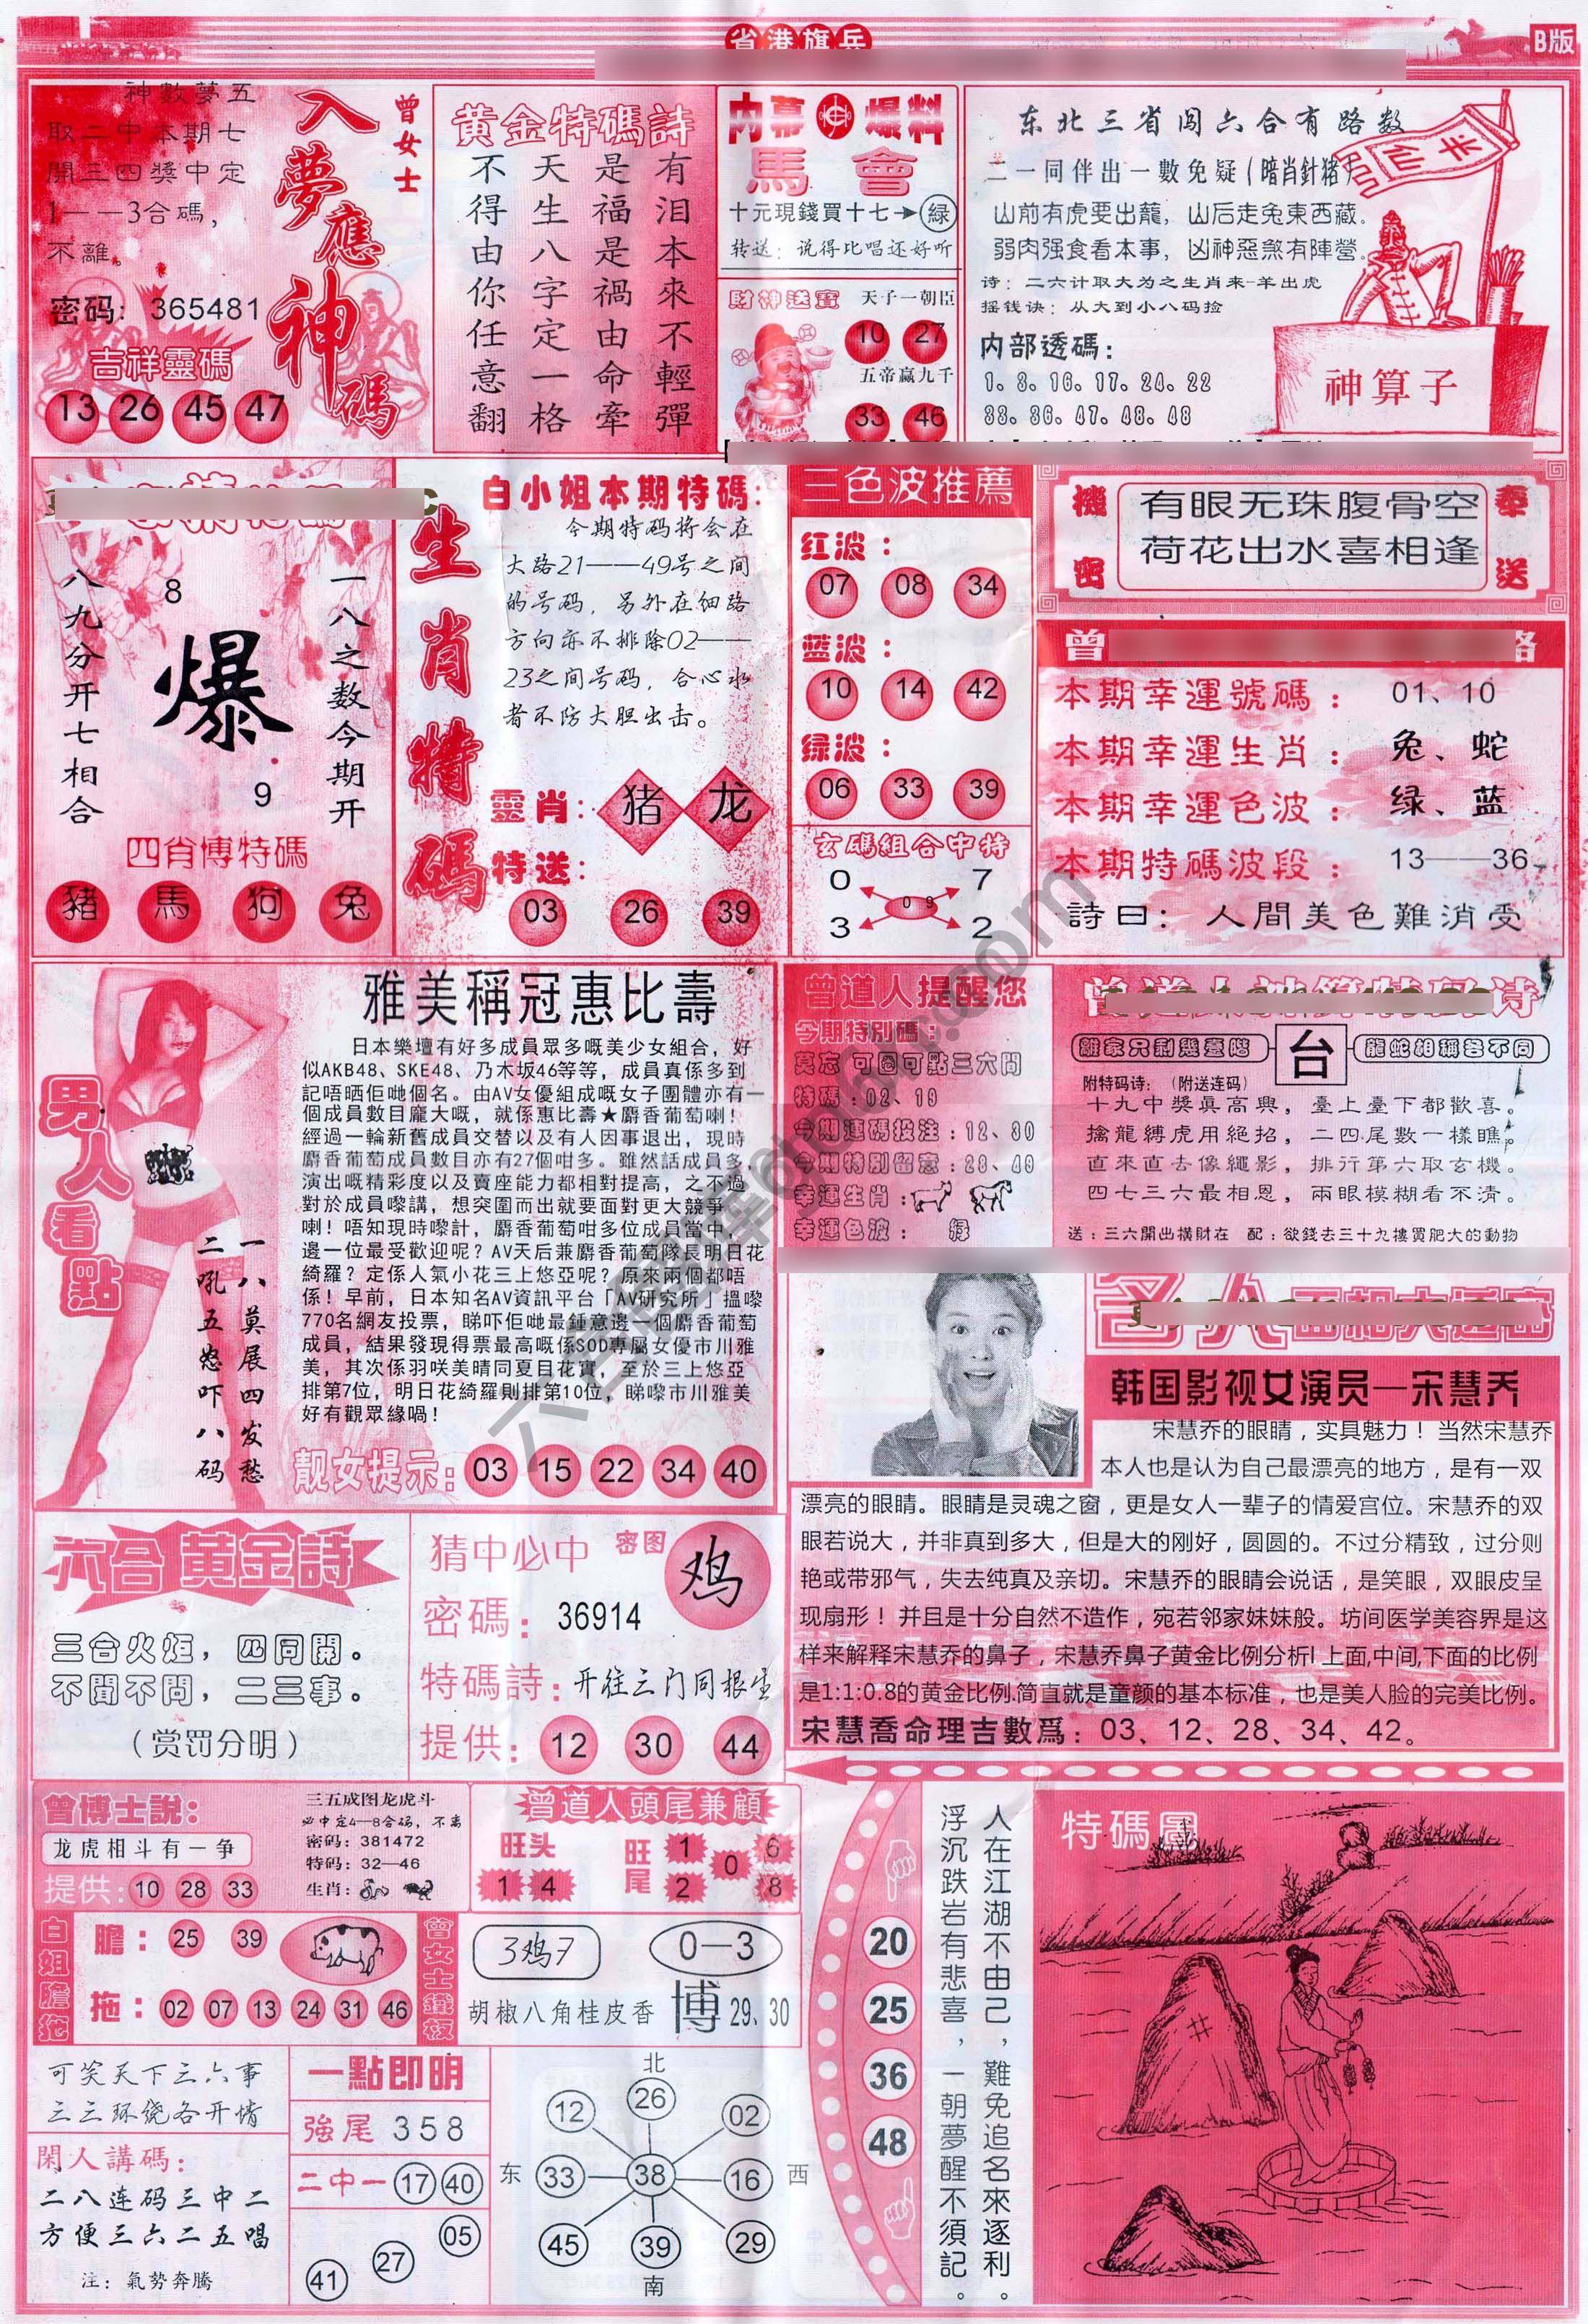 省港旗兵
B版
神數夢五
取二中本期七
開三四獎中定
1——3合碼，
不離。
密码：365481
吉祥靈碼
13 26 45 47
曾女士
入夢應神碼
黄金特碼詩
有泪本來不輕彈
是福是禍由命牽
天生八字定一格
不得由你任意翻
内幕 爆料
馬會
十元現錢買十七→緑
转送：说得比唱还好听
財神送寶
天子一朝臣
10 27
五帝赢九千
33 46
东北三省闯六合有路数
二一同伴出一數免疑（暗肖針猪）
山前有虎要出龍，山后走兔東西藏。
弱肉强食看本事，凶神惡煞有陣營。
诗：二六计取大为之生肖来-羊出虎
摇钱诀：从大到小八码捡
内部透碼：
1. 8. 16. 17. 24. 22
33. 36. 47. 48. 48
半仙
神算子
一八之数今期开
8
爆
9
八九分开七相合
四肖博特碼
豬 馬 狗 兔
生肖特碼
白小姐本期特碼：
今期特码将会在
大路21——49号之间
的号码，另外在细路
方向亦不排除02——
23之间号码，合心水
者不防大胆出击。
靈肖：猪 龙
特送：
03 26 39
三色波推薦
红波：
07 08 34
蓝波：
10 14 42
绿波：
06 33 39
玄碼組合中特
0 7
0 9
3 2
機密
有眼无珠腹骨空
荷花出水喜相逢
奉送
曾
本期幸運號碼：01、10
本期幸運生肖：兔、蛇
本期幸運色波：绿、蓝
本期特碼波段：13——36
詩曰：人間美色難消受
男人看點
一八莫展四发愁
二吼五怒吓八码
雅美稱冠惠比壽
日本樂壇有好多成員眾多嘅美少女組合，好
似AKB48、SKE48、乃木坂46等等，成員真係多到
記唔晒佢哋個名。由AV女優組成嘅女子團體亦有一
個成員數目龐大嘅，就係惠比壽★麝香葡萄喇！
經過一輪新舊成員交替以及有人因事退出，現時
麝香葡萄成員數目亦有27個咁多。雖然話成員多，
演出嘅精彩度以及賣座能力都相對提高，之不過
對於成員嚟講，想突圍而出就要面對更大競爭
喇！唔知現時嚟計，麝香葡萄咁多位成員當中，
邊一位最受歡迎呢？AV天后兼麝香葡萄隊長明日花
綺羅？定係人氣小花三上悠亞呢？原來兩個都唔
係！早前，日本知名AV資訊平台「AV研究所」搵嚟
770名網友投票，睇吓佢哋最鍾意邊一個麝香葡萄
成員，結果發現得票最高嘅係SOD專屬女優市川雅
美，其次係羽咲美晴同夏目花實，至於三上悠亞
排第7位，明日花綺羅則排第10位，睇嚟市川雅美
好有觀眾緣喎！
靓女提示：03 15 22 34 40
曾道人提醒您
今期特別碼：
莫忘 可圈可點三六問
特碼：02、19
今期連碼投注：12、30
今期特別留意：28、49
幸運生肖：
幸運色波：绿
離家只剩幾臺階
台
龍蛇相稱各不同
附特码诗：（附送连码）
十九中獎真高興，臺上臺下都歡喜。
擒龍縛虎用絕招，二四尾數一樣瞧。
直來直去像繩影，排行第六取玄機。
四七三六最相恩，兩眼模糊看不清。
送：三六開出橫財在 配：欲錢去三十九樓買肥大的動物
韩国影视女演员—宋慧乔
宋慧乔的眼睛，实具魅力！当然宋慧乔
本人也是认为自己最漂亮的地方，是有一双
漂亮的眼睛。眼睛是灵魂之窗，更是女人一辈子的情爱宫位。宋慧乔的双
眼若说大，并非真到多大，但是大的刚好，圆圆的。不过分精致，过分则
艳或带邪气，失去纯真及亲切。宋慧乔的眼睛会说话，是笑眼，双眼皮呈
现扇形！并且是十分自然不造作，宛若邻家妹妹般。坊间医学美容界是这
样来解释宋慧乔的鼻子，宋慧乔鼻子黄金比例分析I 上面,中间,下面的比例
是1:1:0.8的黄金比例.简直就是童颜的基本标准，也是美人脸的完美比例。
宋慧喬命理吉數爲：03、12、28、34、42。
六合黄金詩
三合火炬，四同開。
不聞不問，二三事。
（赏罚分明）
猜中必中 密图 鸡
密碼：36914
特碼詩：开往三门同根生
提供：12 30 44
曾博士説：
龙虎相斗有一争
提供：10 28 33
三五成图龙虎斗
必中定4—8合码，不离
密码：381472
特码：32—46
生肖：
曾道人頭尾兼顧
旺头
1 4
旺尾
1 0 6
2 8
白姐膽拖
膽：25 39
拖：02 07 13 24 31 46
曾女士鐵板
3鸡7
0—3
胡椒八角桂皮香 博 29、30
可笑天下三六事
三三环绕各开情
閑人講碼：
二八连码三中二
方便三六二五唱
注：氣勢奔騰
一點即明
強尾 358
二中一 17 40
05
27
41
北
12 26 02
东 33 38 16 西
45 39 29
南
20
25
36
48
人在江湖不由己，難免追名來逐利。
浮沉跌岩有悲喜，一朝夢醒不須記。
特碼圖
井